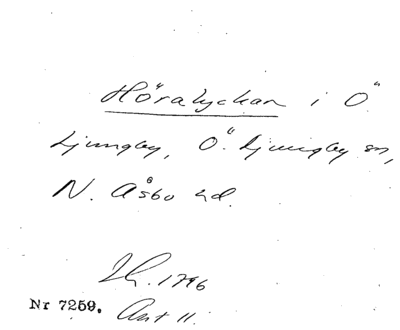 Höralyckan i Ö
Ljungby, Ö. Ljungby sn,
N. Åsbo hd.
1796
Nr 7259. Akt 11.